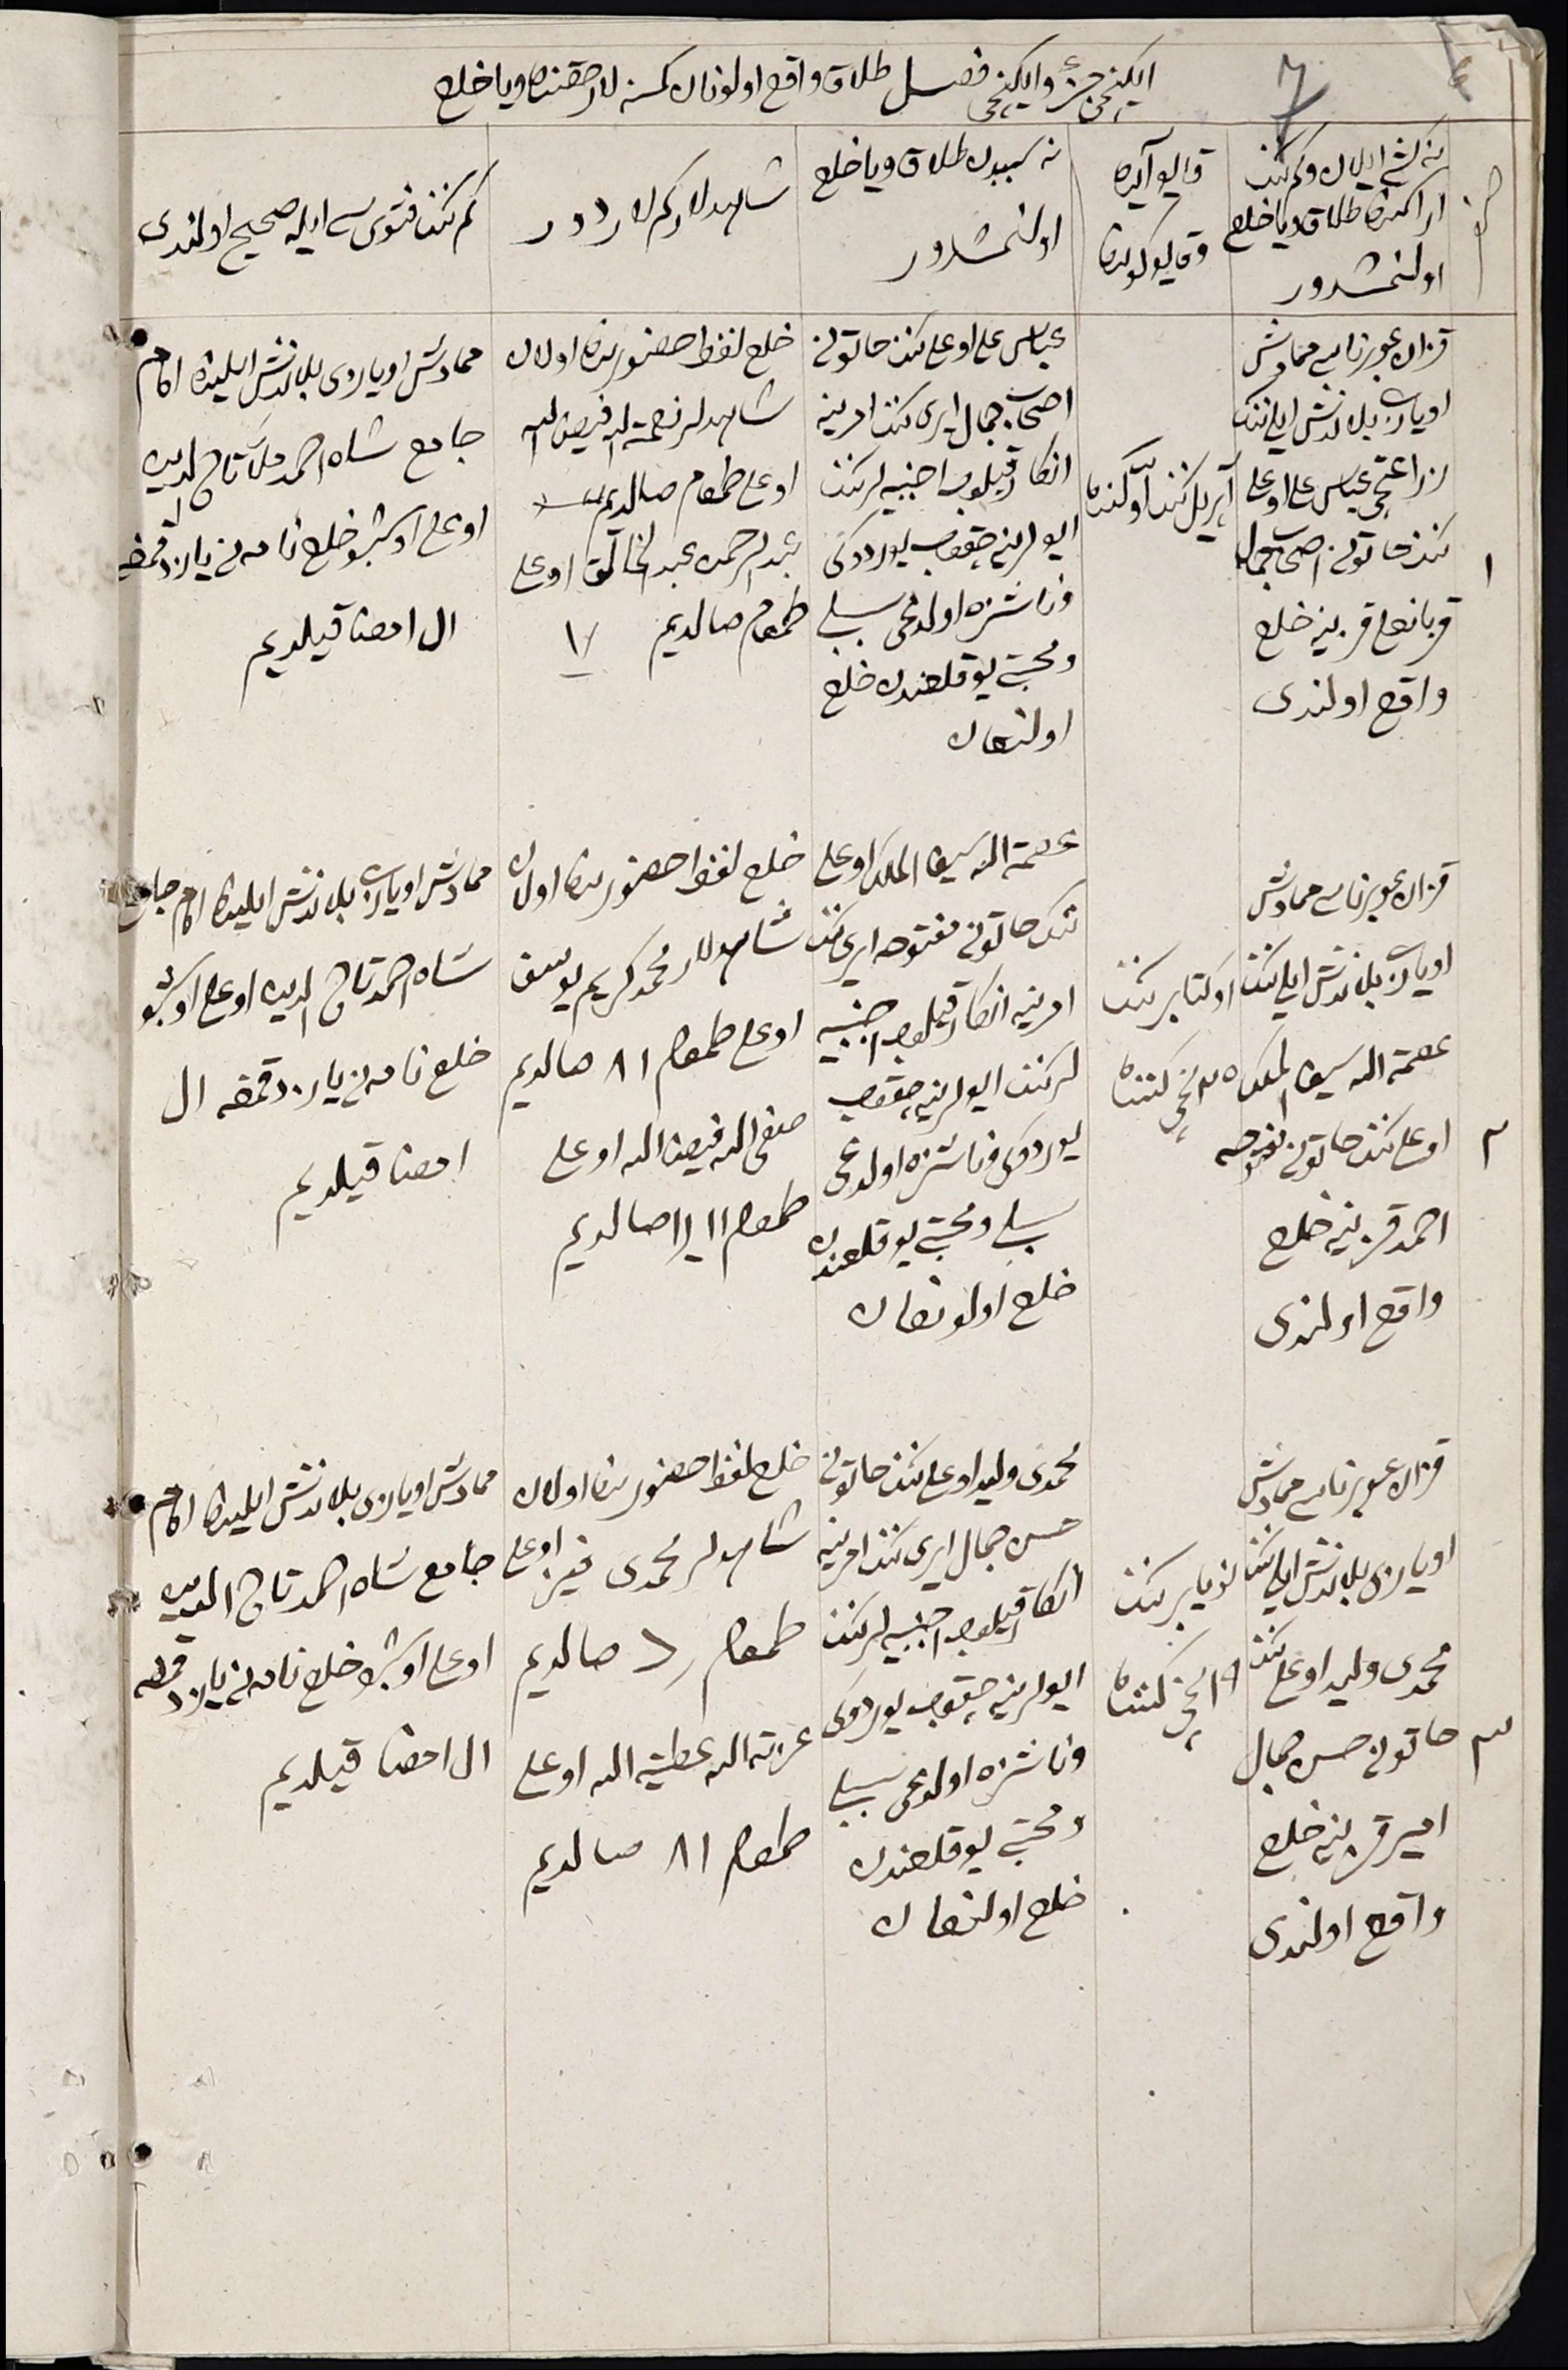 ایکنچی جزء و ایکنچی فصل طلاق واقع اولونان کمسنه لار حقنده ویا خلع
نه کشی ایلان وکم ننک
اراسنده طلاق ویا خلع
اولنمشدور
قایو آیده
وقایو کونده
نه سببدن طلاق ویا خلع
اولنمشدور
شاهدلار کم لاردور
کم ننک فتوی سی ایله صحیح اولندی
١
قزان غوبرناسی ممادش
اویازی بلاندش ایلی ننک
عباس علی اوغلی
ننک خاتونی اصحاب جمال
قربانعلی قزینه خلع
واقع اولندی
آپریل ننک اول کننده
عباس علی اوغلی ننک خاتونی
اصحاب جمال ایری ننک امرینه
انکار قیلوب اجنبیه لرننک
ایولرینه چقوب یوردوکی
وناشزه اولدغی سببلی
ومحبتی یوقلغندن خلع
اولنغان
خلع لفظی حضورنده اولان
شاهدلر نعمة الله فیض الله
اوغلی طمغام صالدیم
عبدالرحمن عبدالخالق اوغلی
طمغام صالدیم
ممادش اویازی بلاندش ایلینده امام
جامع شاه احمد ملا تاج الدین
اوغلی اوشبو خلع نامه نی یازدقمغه
ال امضا قیلدیم
٢
قزان غوبرناسی ممادش
اویازی بلاندش ایلی ننک
عصمة الله سیف الملک
اوغلی ننک خاتونی مفتوحه
احمد قزینه خلع
واقع اولندی
اوکتابر ننک
٢٥ نچی کننده
عصمة الله سیف الملک اوغلی
ننک خاتونی مفتوحه ایری ننک
امرینه انکار قیلوب اجنبیه
لرننک ایولرینه چقوب
یوردوکی وناشزه اولدغی
سببلی ومحبتی یوقلغندن
خلع اولونغان
خلع لفظی حضورنده اولان
شاهدلار محمد کریم یوسف
اوغلی طمغام ٨١ صالدیم
صفی الله فیض الله اوغلی
طمغام صالدیم
ممادش اویازی بلاندش ایلینده امام جامع
شاه احمد تاج الدین اوغلی اوشبو
خلع نامه نی یازدقمغه ال
امضا قیلدیم
٣
قزان غوبرناسی ممادش
اویازی بلاندش ایلی ننک
محمدی ولید اوغلی ننک
خاتونی حسن جمال
امیر قزینه خلع
واقع اولندی
نویابر ننک
١٩ نچی کننده
محمدی ولید اوغلی ننک خاتونی
حسن جمال ایری ننک امرینه
انکار قیلوب اجنبیه لرننک
ایولرینه چقوب یوردوکی
وناشزه اولدغی سببلی
ومحبتی یوقلغندن
خلع اولنغان
خلع لفظی حضورنده اولان
شاهدلر محمدی اوغلی
طمغام صالدیم
عزة الله عطیة الله اوغلی
طمغام ٨١ صالدیم
ممادش اویازی بلاندش ایلینده امام
جامع شاه احمد تاج الدین
اوغلی اوشبو خلع نامه نی یازدقمغه
ال امضا قیلدیم